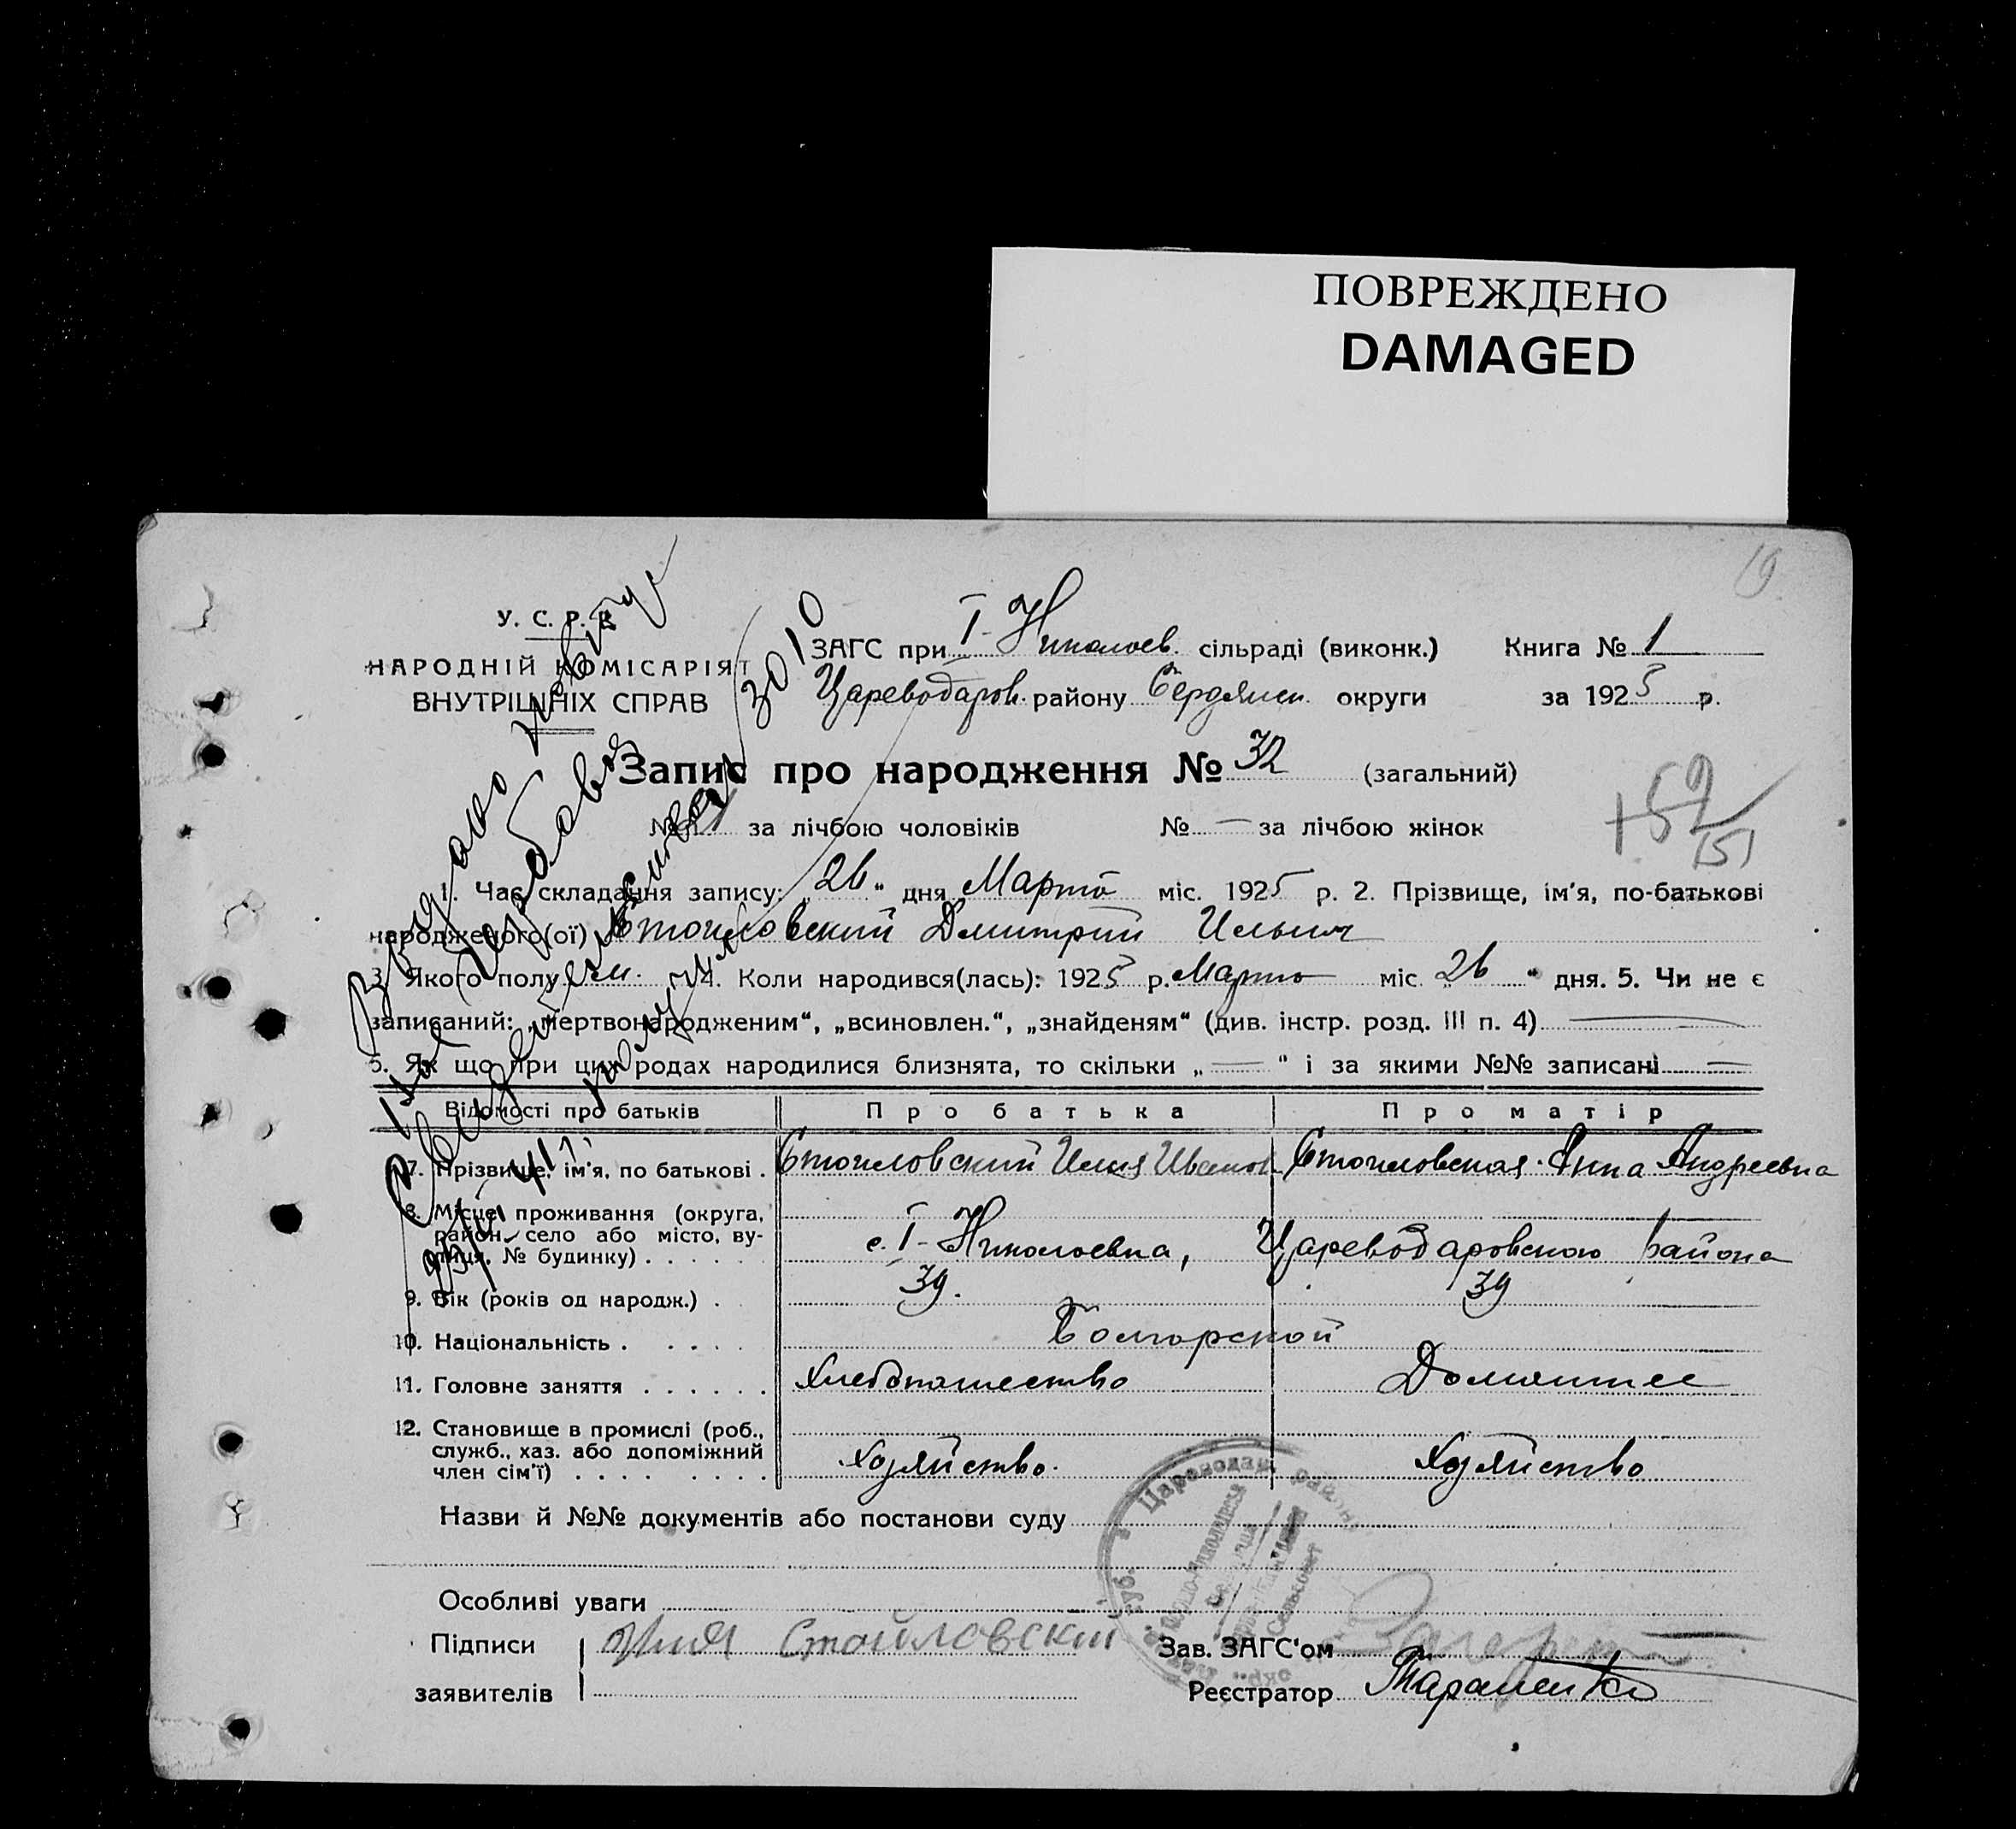 ПОВРЕЖДЕНО
DAMAGED
19
У. С. Р. Р.
НАРОДНІЙ КОМІСАРІЯТ
ВНУТРІШНІХ СПРАВ
ЗАГС при І-Николаев. сільраді (виконк.) Книга № 1
Цареводаров. району Бердянск. округи за 1925 р.
Запис про народження № 32 (загальний)
№ за лічбою чоловіків № — за лічбою жінок
+59
151
1. Час складання запису: „26“ дня Марта міс. 1925 р. 2. Прізвище, ім'я, по-батькові
народженого(ої) Стоиловский Дмитрий Ильич
3. Якого полу м. 4. Коли народився(лась): 1925 р. Марта міс. „26“ дня. 5. Чи не є
записаний: „мертвонародженим“, „всиновлен.“, „знайденям“ (див. інстр. розд. III п. 4)
6. Як що при цих родах народилися близнята, то скільки „ “ і за якими №№ записані
Відомості про батьків Про батька Про матір
7. Прізвище, ім'я, по батькові . Стоиловский Илия Иванов. Стоиловская Анна Андреевна
8. Місце проживання (округа, район, село або місто, вулиця, № будинку) . . . . . .
с. І-Николаевка, Цареводаровского района
9. Вік (років од народж.) . 39. 39
10. Національність . . . . . Болгарской
11. Головне заняття . . . . . . Хлебопашество Домашнее
12. Становище в промислі (роб., служб., хаз. або допоміжний член сім'ї) . . . . . . . .
Хозяйство. Хозяйство
Назви й №№ документів або постанови суду
Особливі уваги
Підписи Илия Стойловский Зав. ЗАГС'ом
заявителів Реєстратор Тараненко
Цареводар. района
Сельсовет
3010